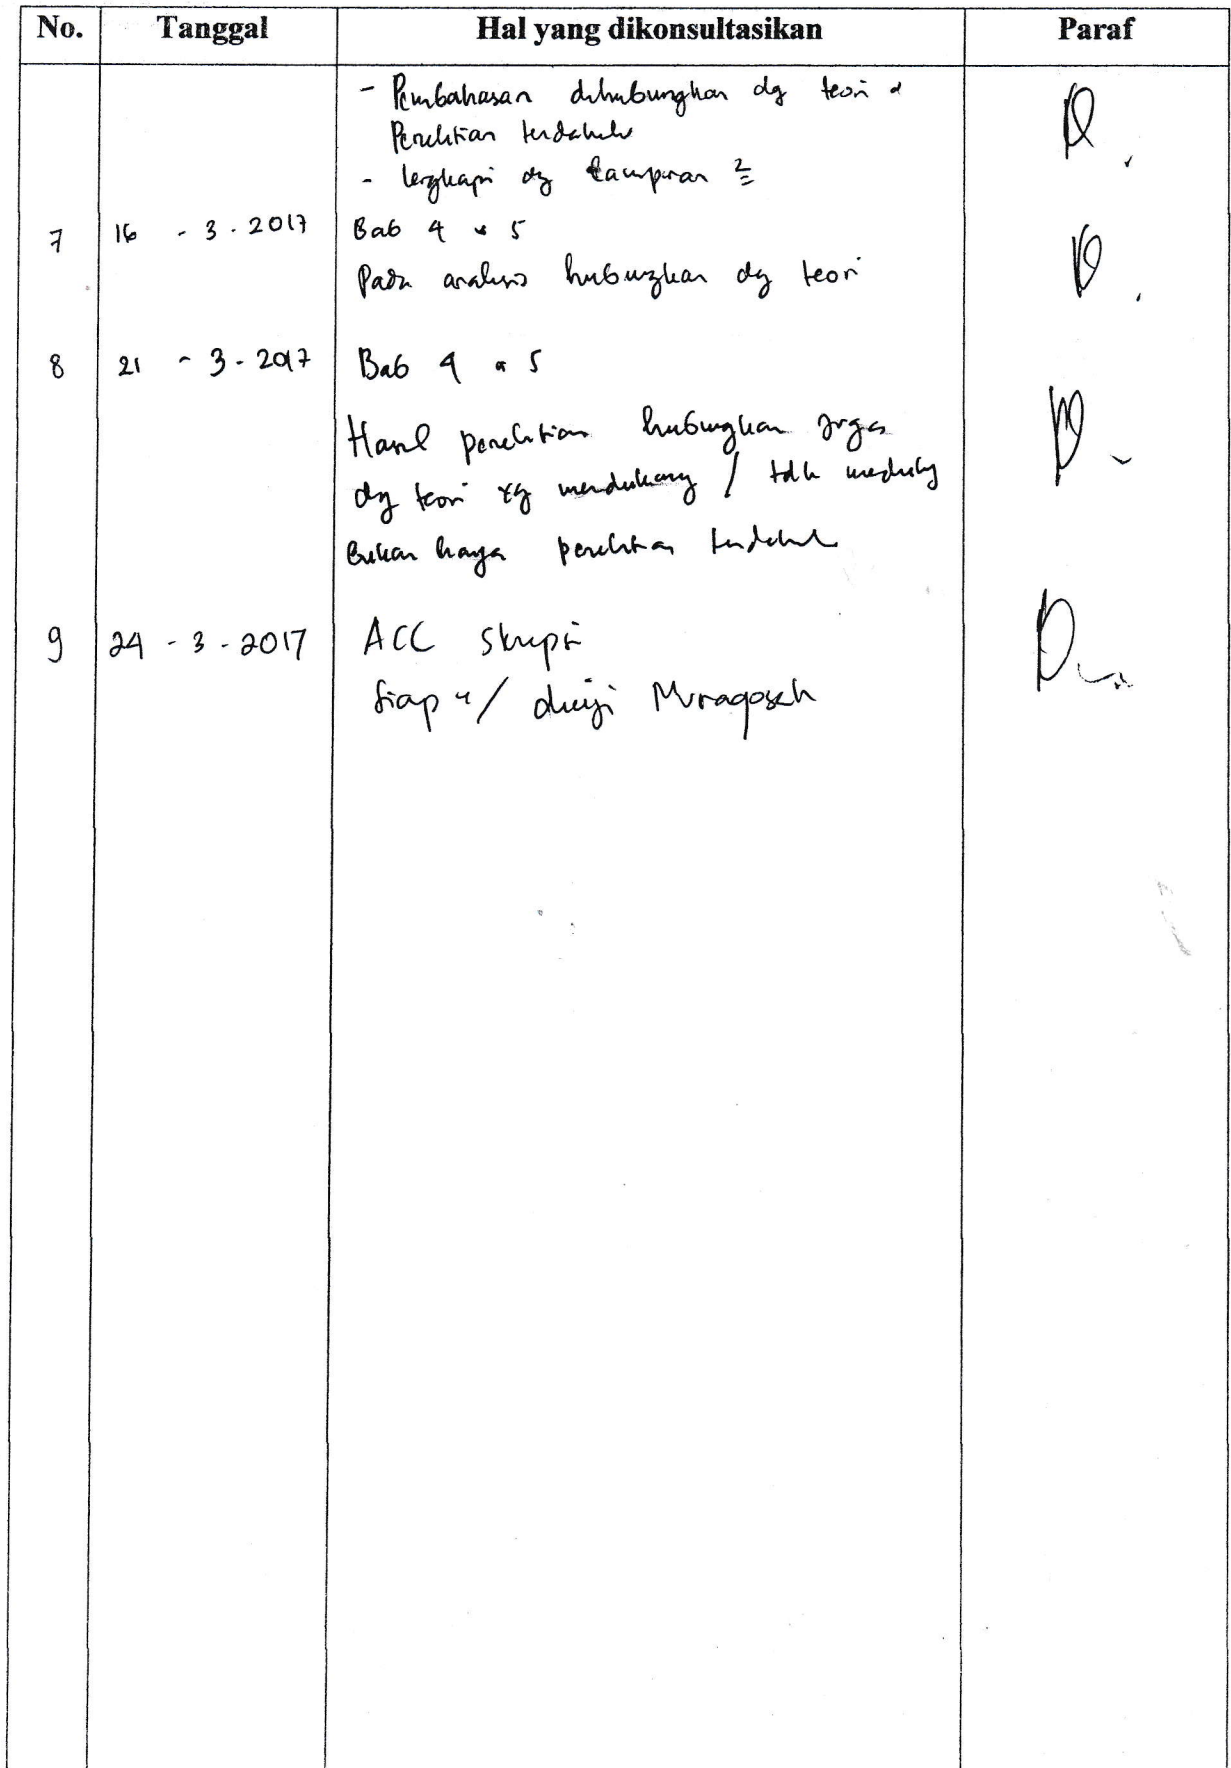 No. Tanggal Hal yang dikonsultasikan Paraf
- Pembahasan dihubungkan dg teori &
Penelitian terdahulu
- lengkapi dg Lampiran 2
7 16 - 3 - 2017 Bab 4 & 5
Pada analisis hubungkan dg teori
8 21 - 3 - 2017 Bab 4 & 5
Hasil penelitian hubungkan juga
dg teori yg mendukung / tdk mendukung
Bukan hanya penelitian terdahulu
9 24 - 3 - 2017 ACC Skripsi
Siap u/ diuji Munaqosah